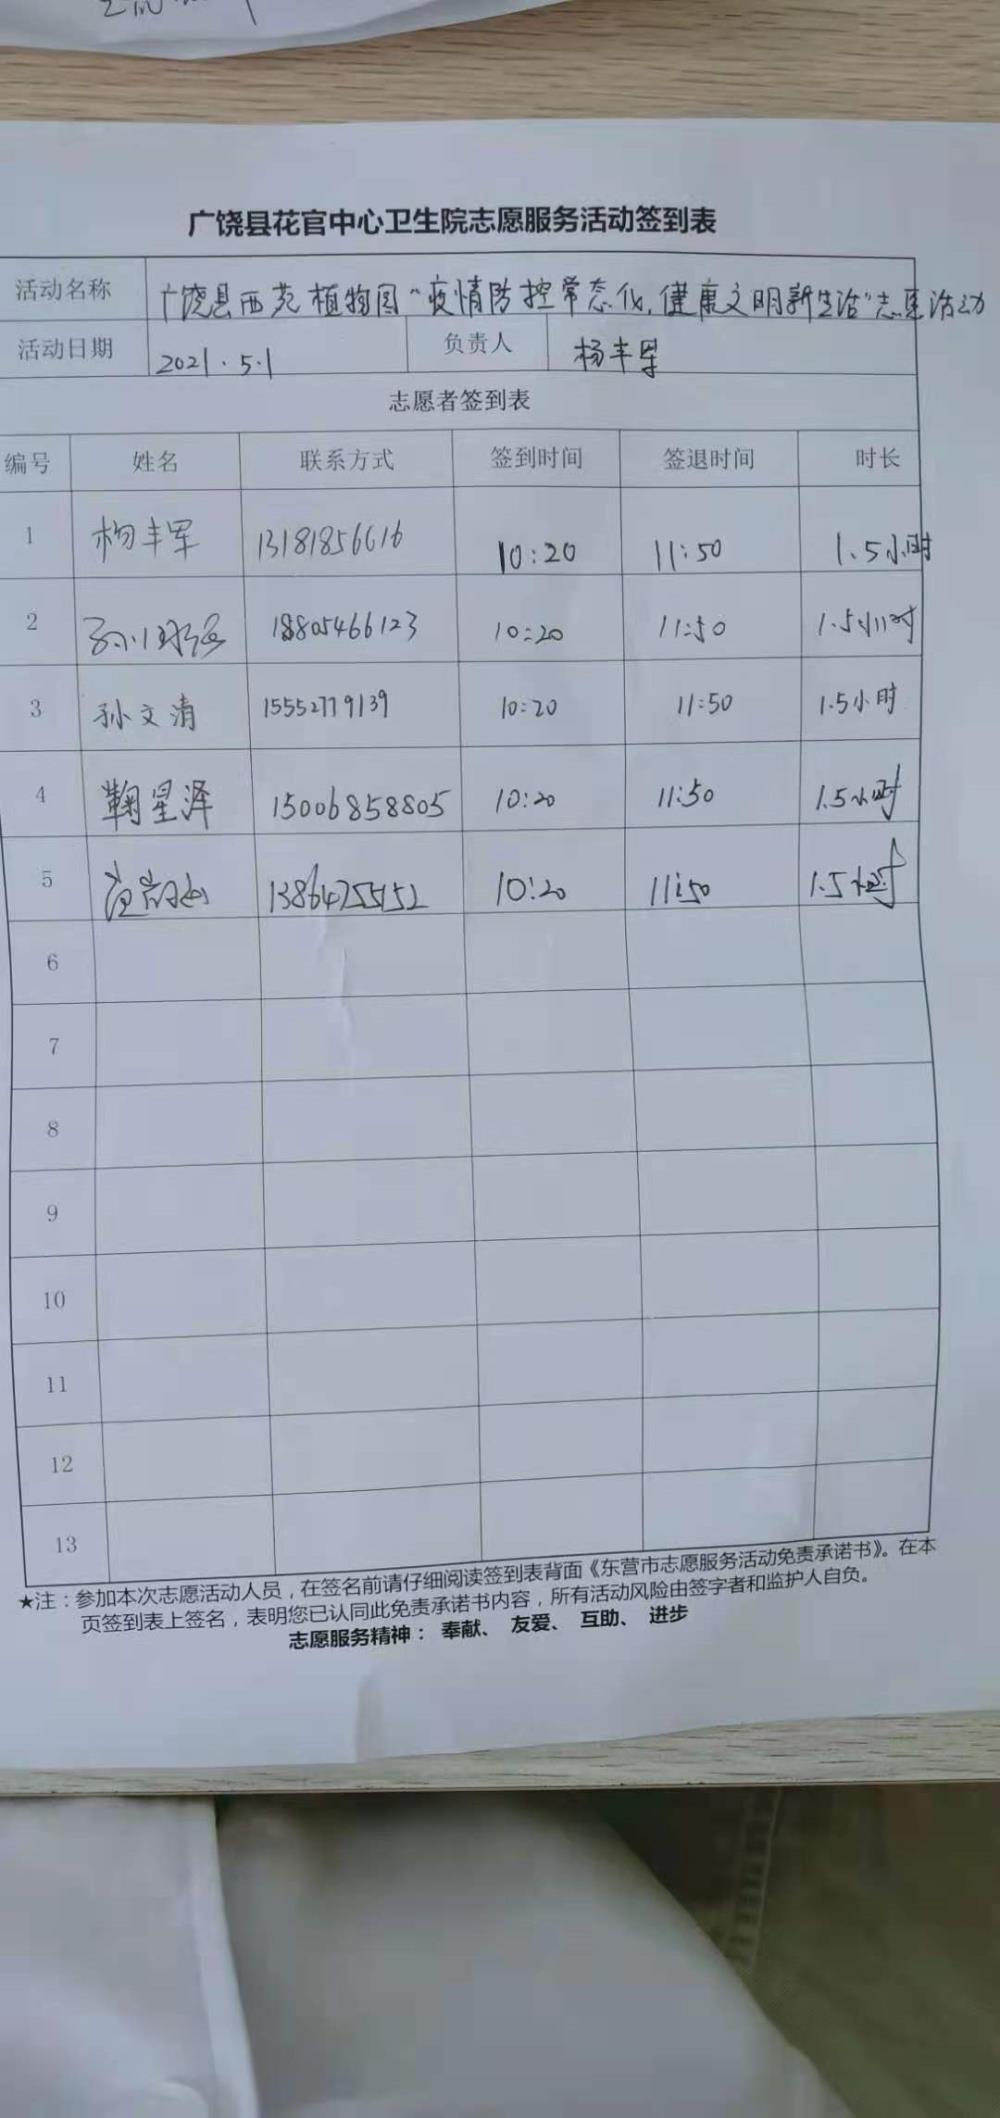 广饶县花官中心卫生院志愿服务活动签到表
活动名称 广饶县西苑植物园“疫情防控常态化,健康文明新生活”志愿活动
活动日期 2021.5.1 负责人 杨丰军
志愿者签到表
编号 姓名 联系方式 签到时间 签退时间 时长
1 杨丰军 13181856616 10:20 11:50 1.5小时
2 18805466123 10:20 11:50 1.5小时
3 孙文清 15552779139 10:20 11:50 1.5小时
4 鞠星泽 15006858805 10:20 11:50 1.5小时
5 13864755152 10:20 11:50 1.5小时
6
7
8
9
10
11
12
13
★注：参加本次志愿活动人员，在签名前请仔细阅读签到表背面《东营市志愿服务活动免责承诺书》。在本
页签到表上签名，表明您已认同此免责承诺书内容，所有活动风险由签字者和监护人自负。
志愿服务精神： 奉献、 友爱、 互助、 进步